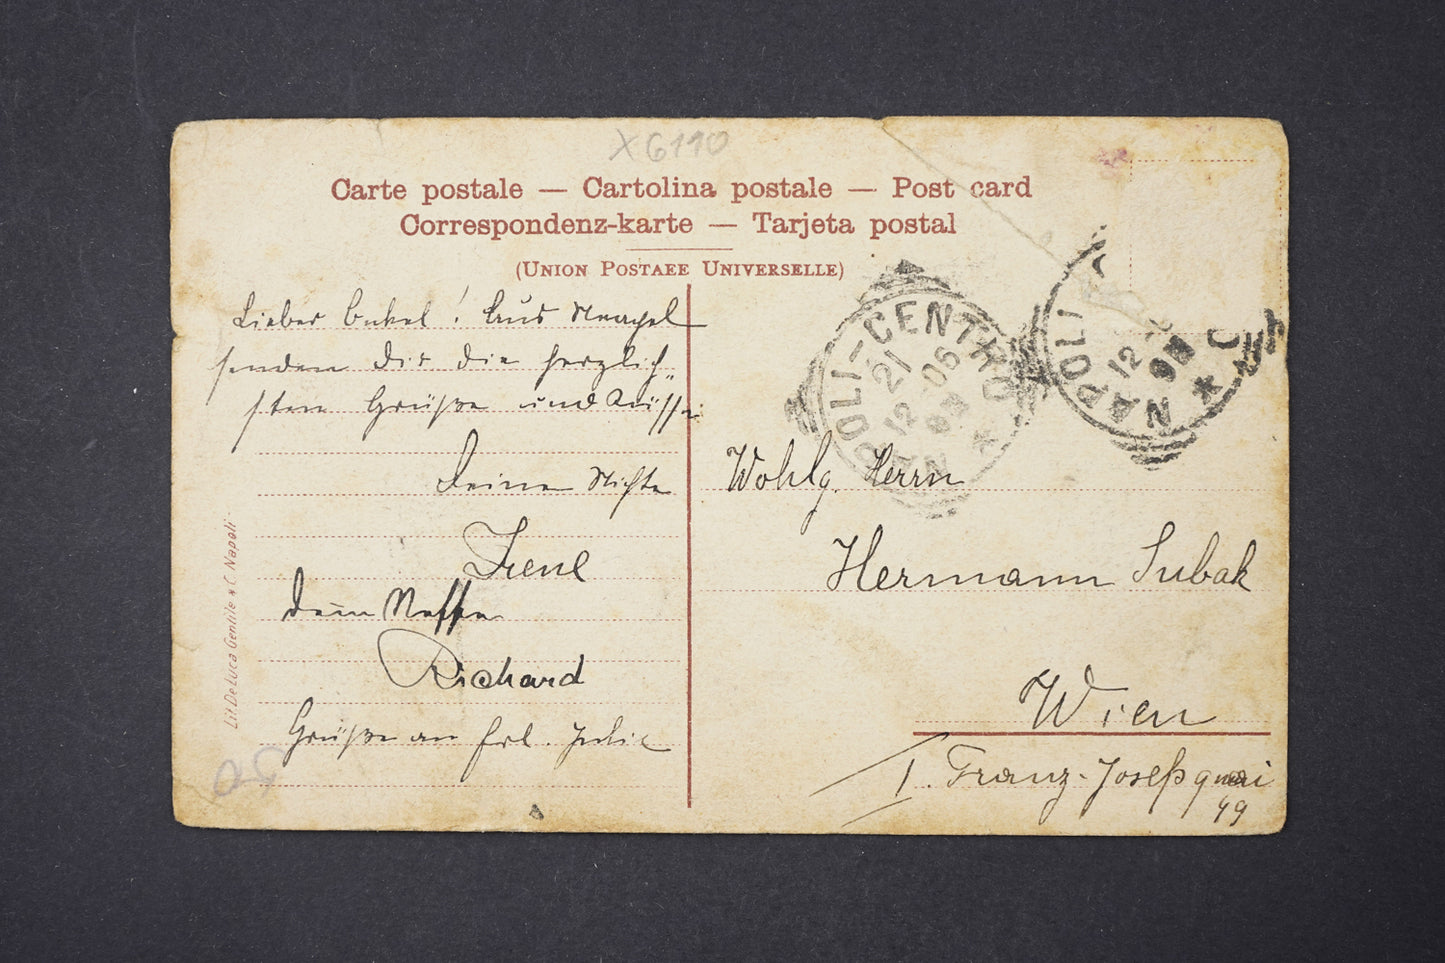 X6110
Carte postale — Cartolina postale — Post card
Correspondenz-karte — Tarjeta postal
(UNION POSTAEE UNIVERSELLE)
Lieber Onkel! Aus Neapel
senden Dir die herzlich„
sten Grüße und Küsse
Deine Nichte
Irene
dein Neffe
Richard
Grüße an Frl. Julie
Lit. De Luca Gentile & C. Napoli
50
NAPOLI-CENTRO
21
12 06
NAPOLI
NAPOLI C
12
NAPOLI
Wohlg. Herrn
Hermann Subak
Wien
I. Franz-Josefsquai
49